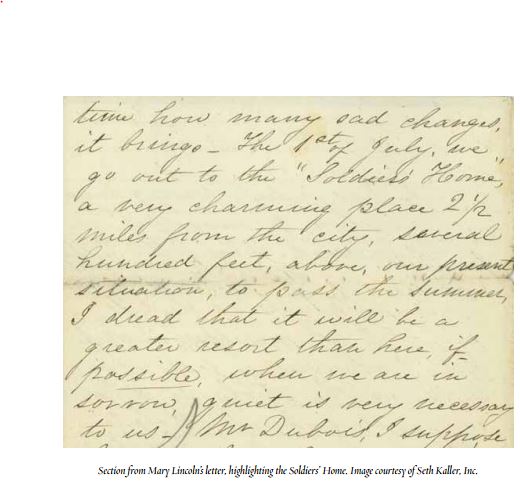 time how many sad changes,
it brings - The 1st of July, we
go out to the "Soldiers' Home",
a very charming place 2 1/2
miles from the city, several
hundred feet, above, our present
situation, to pass the summer,
I dread that it will be a
greater resort than here, if
possible, when we are in
sorrow, quiet is very necessary
to us - Mr Dubois, I suppose
Section from Mary Lincoln's letter, highlighting the Soldiers' Home. Image courtesy of Seth Kaller, Inc.